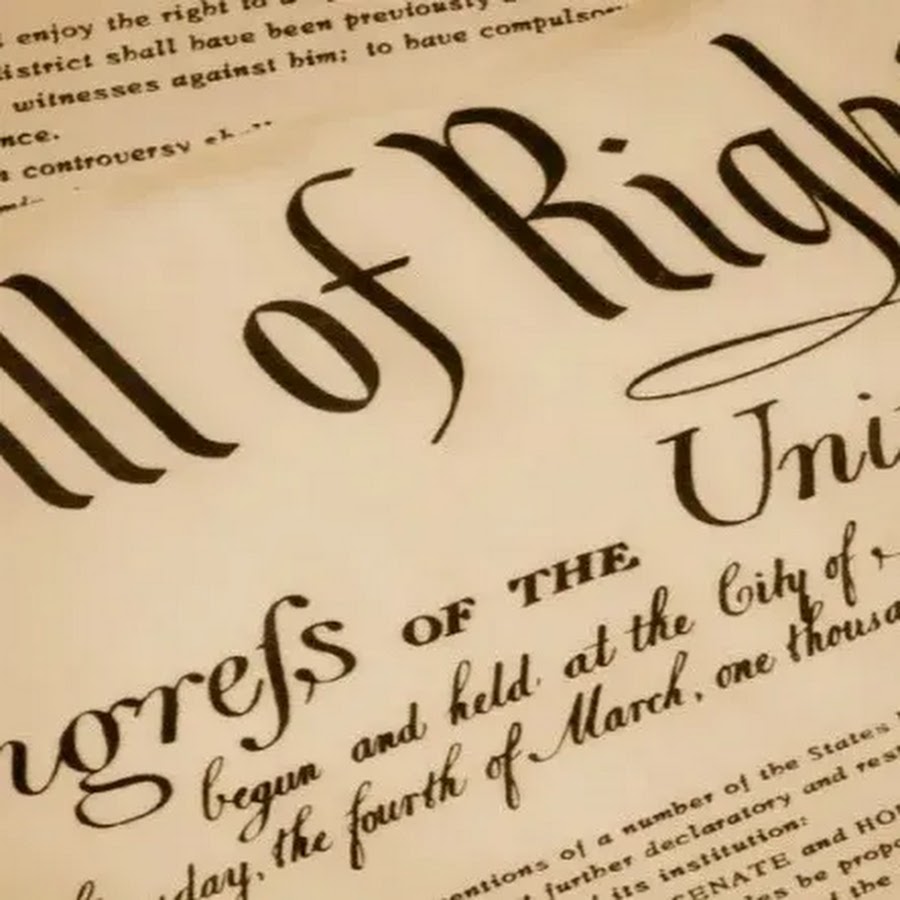 enjoy the right to a
district shall have been previously
witnesses against him; to have compulsor
nce.
controversy shall
ll of Righ
Uni
ngreſs OF THE
begun and held at the City of
sday, the fourth of March, one thousa
entions of a number of the States
further declaratory and res
its institution:
SENATE and HO
les be propo
of the